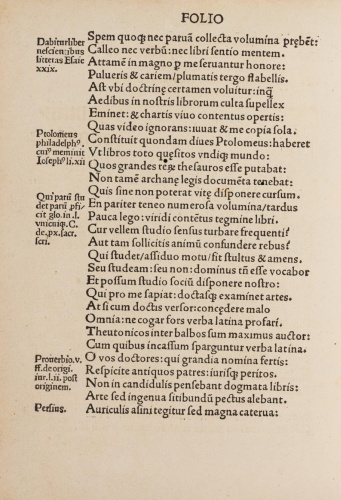 FOLIO
Dabitur liber
nesciẽtibus
litteras Esaie
xxix.
Spem quoq; nec paruã collecta volumina prębẽt:
Calleo nec verbũ: nec libri sentio mentem.
Attamẽ in magno ꝑ me seruantur honore:
Pulueris & cariem/plumatis tergo flabellis.
Ast vbi doctrinę certamen voluitur: inq̃
Aedibus in nostris librorum culta supellex
Eminet: & chartis viuo contentus opertis:
Quas video ignorans: iuuat & me copia sola.
Ptolomeus
philadelphꝰ
cuiꝰ meminit
Iosephꝰ li. xii
Constituit quondam diues Ptolomeus: haberet
Vt libros toto quęsitos vndiq; mundo:
Quos grandes rerũ thesauros esse putabat:
Non tamẽ archanę legis documẽta tenebat:
Quis sine non poterat vitę disponere cursum.
Qui parũ stu
det parũ ꝓfi
cit glo. in. l.
vnic. in q̃. C.
de. px. sacr.
scri.
En pariter teneo numerosa volumina/tardus
Pauca lego: viridi contẽtus tegmine libri.
Cur vellem studio sensus turbare frequenti?
Aut tam sollicitis animũ confundere rebus?
Qui studet/assiduo motu/fit stultus & amens.
Seu studeam: seu non: dominus tñ esse vocabor
Et possum studio sociũ disponere nostro:
Qui pro me sapiat: doctasq; examinet artes.
At si cum doctis versor: concędere malo
Omnia: ne cogar fors verba latina profari.
Theutonicos inter balbos sum maximus auctor:
Cum quibus incassum sparguntur verba latina.
Prouerbio. v.
ff. de origi.
iur. l. ii. post
originem.
O vos doctores: qui grandia nomina fertis:
Respicite antiquos patres: iurisq; peritos.
Non in candidulis pensebant dogmata libris:
Arte sed ingenua sitibundũ pectus alebant.
Persius.
Auriculis asini tegitur sed magna caterua: